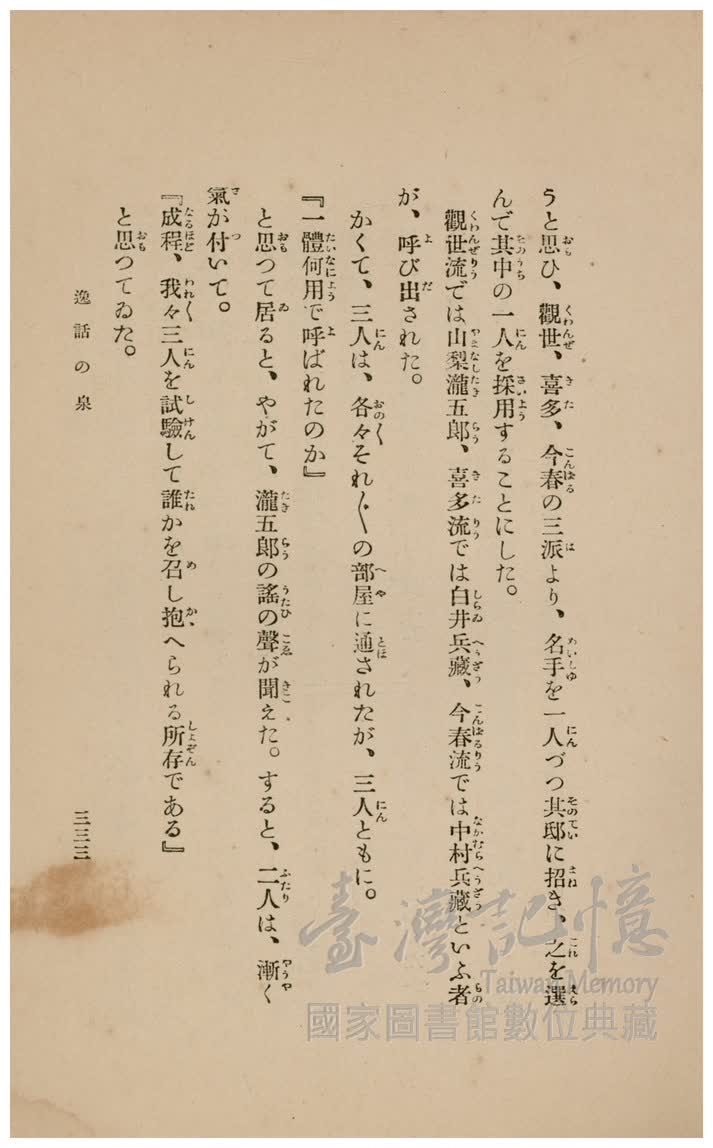 うと思ひ、觀世、喜多、今春の三派より、名手を一人づつ其邸に招き、之を選
んで其中の一人を採用することにした。
觀世流では山梨瀧五郎、喜多流では白井兵藏、今春流では中村兵藏といふ者
が、呼び出された。
かくて、三人は、各々それ〴〵の部屋に通されたが、三人ともに。
『一體何用で呼ばれたのか』
と思つて居ると、やがて、瀧五郎の謠の聲が聞えた。すると、二人は、漸く
氣が付いて。
『成程、我々三人を試驗して誰かを召し抱へられる所存である』
と思つてゐた。
逸話の泉
三三三
臺灣記憶
Taiwan Memory
國家圖書館數位典藏